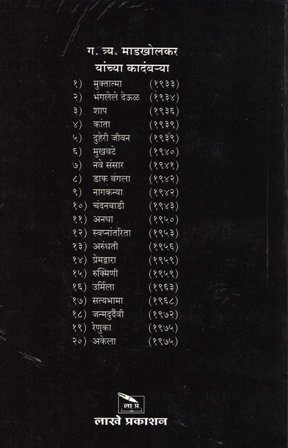 ग. त्र्य. माडखोलकर
यांच्या कादंबऱ्या
१) मुक्तात्मा (१९३३)
२) भंगलेले देऊळ (१९३४)
३) शाप (१९३६)
४) कांता (१९३९)
५) दुहेरी जीवन (१९३९)
६) मुखवटे (१९४०)
७) नवे संसार (१९४१)
८) डाक बंगला (१९४२)
९) नागकन्या (१९४२)
१०) चंदनवाडी (१९४३)
११) अनघा (१९५०)
१२) स्वप्नांतरिता (१९५३)
१३) अरुंधती (१९५६)
१४) प्रेमद्वारा (१९५९)
१५) रुक्मिणी (१९५९)
१६) उर्मिला (१९६३)
१७) सत्यभामा (१९६८)
१८) जन्मदुर्दैवी (१९७२)
१९) रेणुका (१९७५)
२०) अकेला (१९७५)
ला प्र
लाखे प्रकाशन